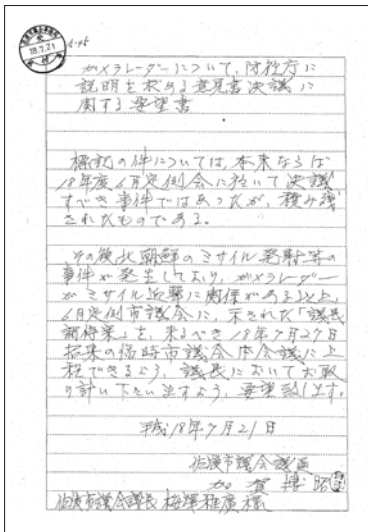 18.7.21
ガメラレーダーについて、防衛庁に
説明を求める意見書決議に
関する要望書
標記の件については、本来ならば
18年度6月定例会に於いて決議
すべき事件ではあったが、積み残
されたものである。
その後北朝鮮のミサイル発射等の
事件が発生しており、ガメラレーダー
がミサイル迎撃に関係がある以上、
6月定例市議会に、示された「議長
調停案」を、来るべき18年7月27日
招集の臨時市議会本会議に上
程できるよう、議長においてお取
り計い下さいますよう、要望致します。
平成18年7月21日
佐渡市議会議員
加賀博昭
佐渡市議会議長 梅澤雅廣様